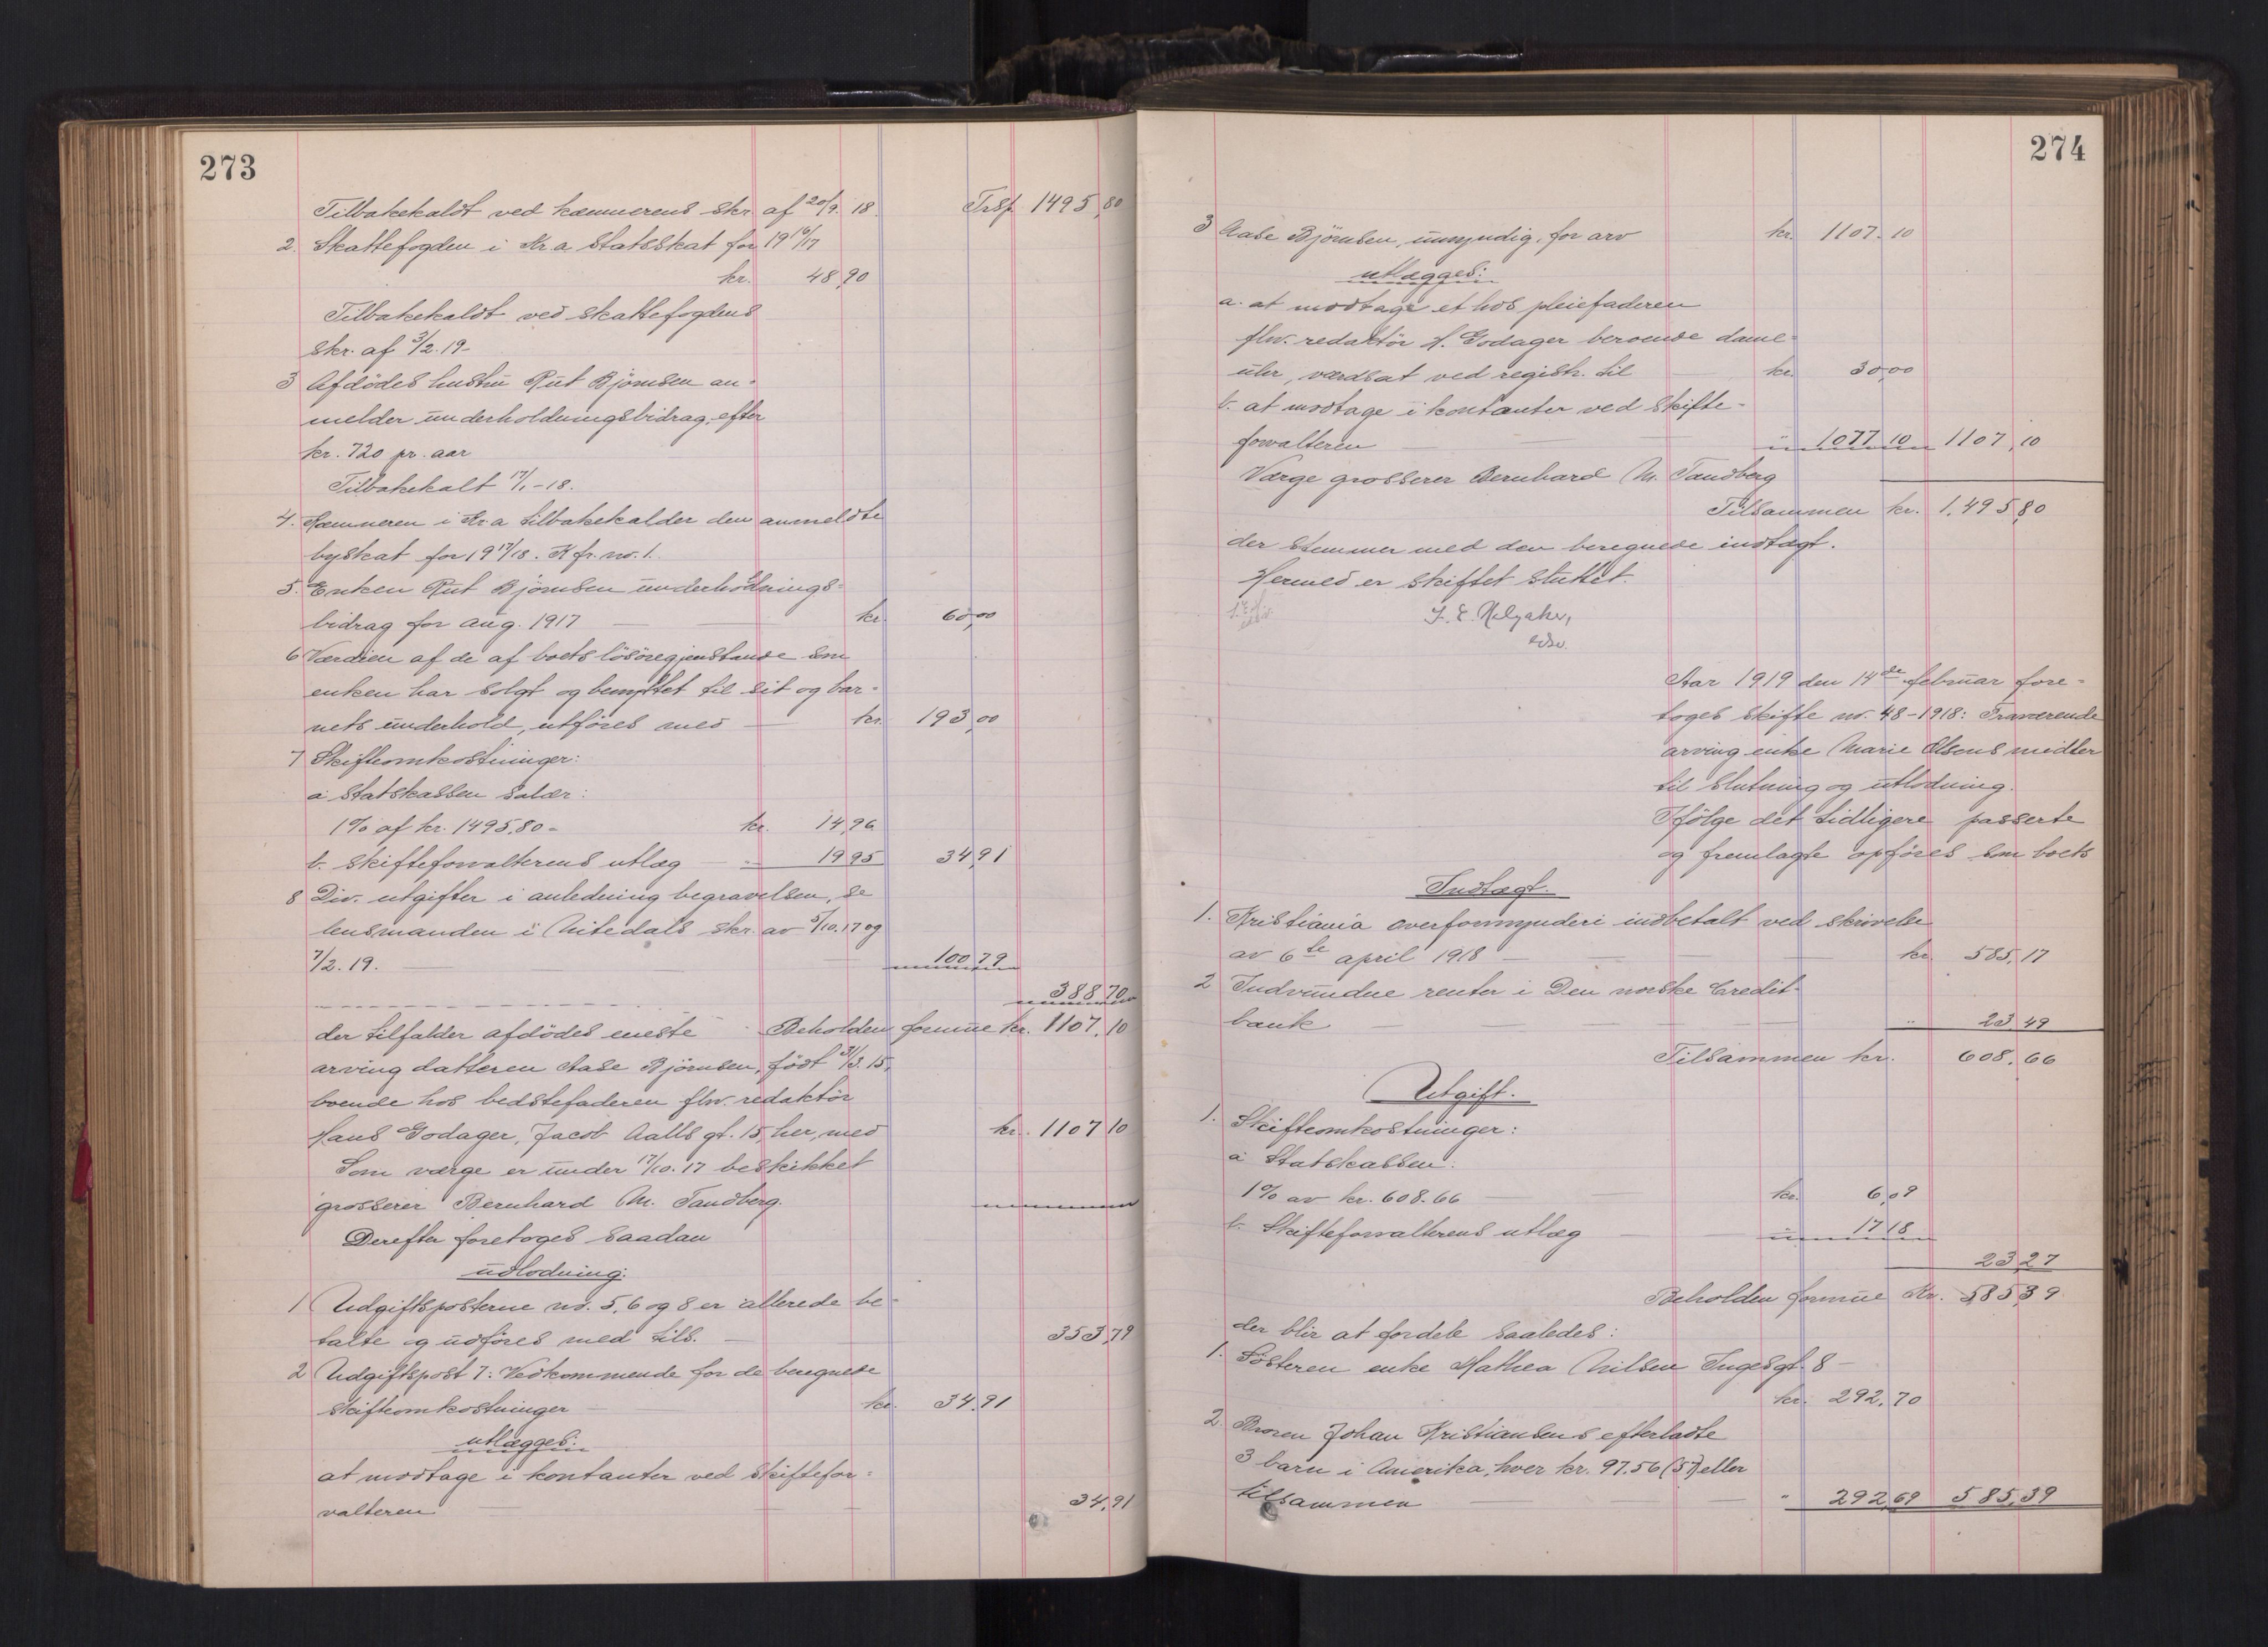 273
Tilbakekaldt ved kæmnerens skr. af 20/9. 18. Trsp. 1495,80
2. Skattefogden i Kr.a. Statsskat for 19 16/17
kr. 48,90
Tilbakekaldt ved skattefogdens
skr. af 3/2. 19-
3 Afdödes hustru Rut Björnsen an-
melder underholdningsbidrag, efter
kr. 720 pr. aar
Tilbakekalt 17/1-18.
4. Kæmneren i Kr.a tilbakekalder den anmeldte
byskat for 19 17/18. Kfr. no. 1.
5. Enken Rut Björnsen underholdnings-
bidrag for aug. 1917 — kr. 60,00
6 Værdien af de af boets lösöregjenstande som
enken har solgt og benyttet til sit og bar-
nets underhold, utföres med — kr. 193,00
7 Skifteomkostninger:
a statskassen salær:
1% af kr. 1495,80 - kr. 14,96
b. skifteforvalterens utlæg — " 19 95 34,91
8 Div. utgifter i anledning begravelsen, se
lensmanden i Nitedals skr. av 5/10. 17 og
7/2. 19. — 100 79
388 70
der tilfalder afdödes eneste Beholden formue kr. 1107,10
arving datteren Aase Björnsen, födt 31/3. 15,
boende hos bedstefaderen fhv. redaktör
Hans Godager, Jacob Aalls gt. 15, her, med kr. 1107 10
Som værge er under 17/10. 17 beskikket
grosserer Bernhard M. Tandberg.
Derefter foretoges saadan
udlodning:
1 Udgiftsposterne no. 5, 6 og 8 er allerede be-
talte og udföres med tils. — 353,79
2 Udgiftspost 7: Vedkommende for de beregnede
skifteomkostninger — kr. 34.91
utlægges:
at modtage i kontanter ved skiftefor-
valteren — 34,91
274
3 Aase Björnsen, umyndig, for arv kr. 1107.10
utlægges:
a. at modtage et hos pleiefaderen
fhv. redaktör H. Godager beroende dame-
uhr, værdsat ved registr. til — kr. 30,00
b. at modtage i kontanter ved skifte-
forvalteren — " 1077 10 1107,10
Værge grosserer Bernhard M. Tandberg
Tilsammen kr. 1,495,80
der stemmer med den beregnede indtægt.
Hermed er skiftet sluttet.
edsv.
Aar 1919 den 14de februar fore-
toges skifte no. 48-1918: Fraværende
arving enke Marie Olsens midler
til slutning og utlodning.
Ifölge det tidligere passerte
og fremlagte opföres som boets
Indtægt.
1. Kristiania overformynderi indbetalt ved skrivelse
av 6te april 1918 — kr. 585,17
2 Indvundne renter i Den norske Credit-
bank — " 23 49
Tilsammen kr. 608.66
Utgift.
1. Skifteomkostninger:
a Statskassen:
1% av kr. 608.66 — kr. 6,09
b. Skifteforvalterens utlæg — " 17 18
23,27
Beholden formue Kr. 585,39
der blir at fordele saaledes:
1. Sösteren enke Mathea Nilsen Ingesgt. 8 —
kr. 292,70
2. Broren Johan Kristiansens efterladte
3 barn i Amerika, hver kr. 97.56 (57) eller
tilsammen — " 292,69 585,39